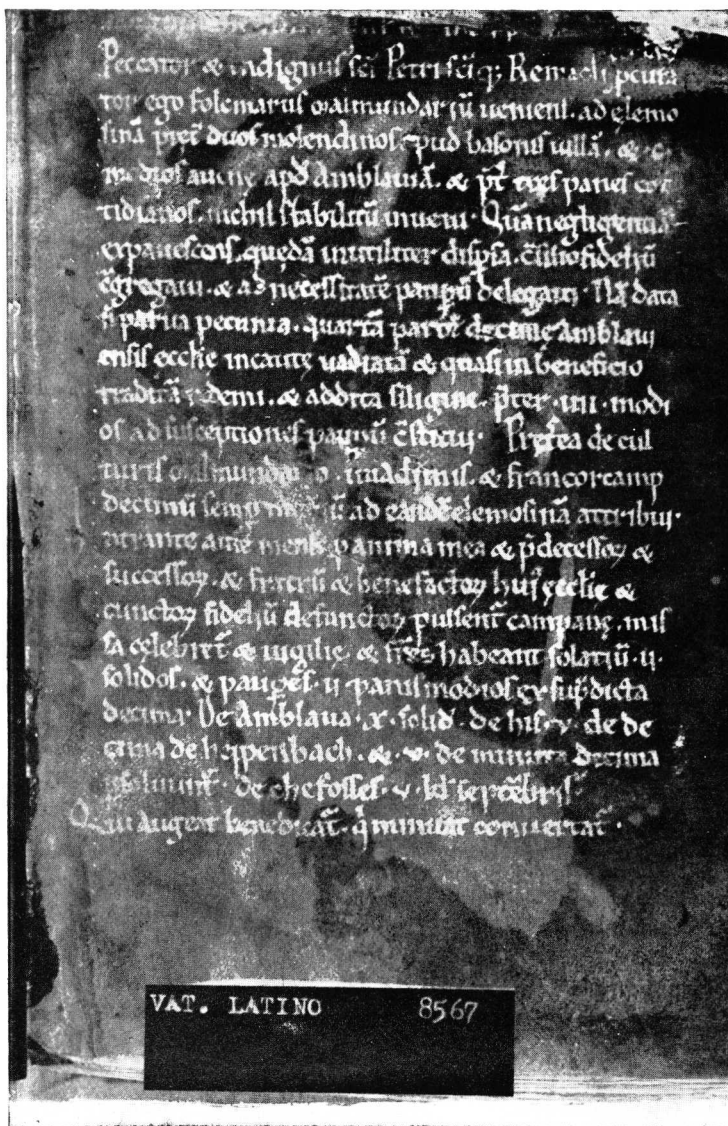 Peccator & indignus sci Petri sciq; Remacli pcura
tor ego folemarus malmundariū ueniens. ad elemo
sinā pret duos molendinos apud basonis uillā. &
modios auene apd Amblauā. & pt tres panes cot
tidianos. nichil stabilitū inueni. Quā negligentiā
expauescens, quedā inutiliter dispsa, c̄silio fideliū
c̄gregaui. & ad necessitatē paupū delegaui. Nā data
si parua pecunia. quartā partē decime Amblaui
ensis ecclie incaute uadiatā & quasi in beneficio
traditā redemi. & addita siligine. pter. iiii. modi
os ad susceptiones paupū c̄stitui. Pretea de cul
turis malmundario. & francorcamp
decimū semp ad eandē elemosinā attribui.
mense p anima mea & pdecessoꝝ &
successoꝝ. & fratrū & benefactoꝝ hui ecclie &
cunctoꝝ fideliū defunctoꝝ pulsent campane. mis
sa celebret & uigilie & frēs habeant solatiū. ii.
solidos. & paupes. ii. paruos modios ex supdicta
decima. De Amblaua. x. solid. de his. v. de de
cima de heppenbach. &. v. de minuta decima
psoluunt. de chefosses. v. kl septēbris
Qui augent benedicāt. q minuāt conuertat.
VAT. LATINO 8567